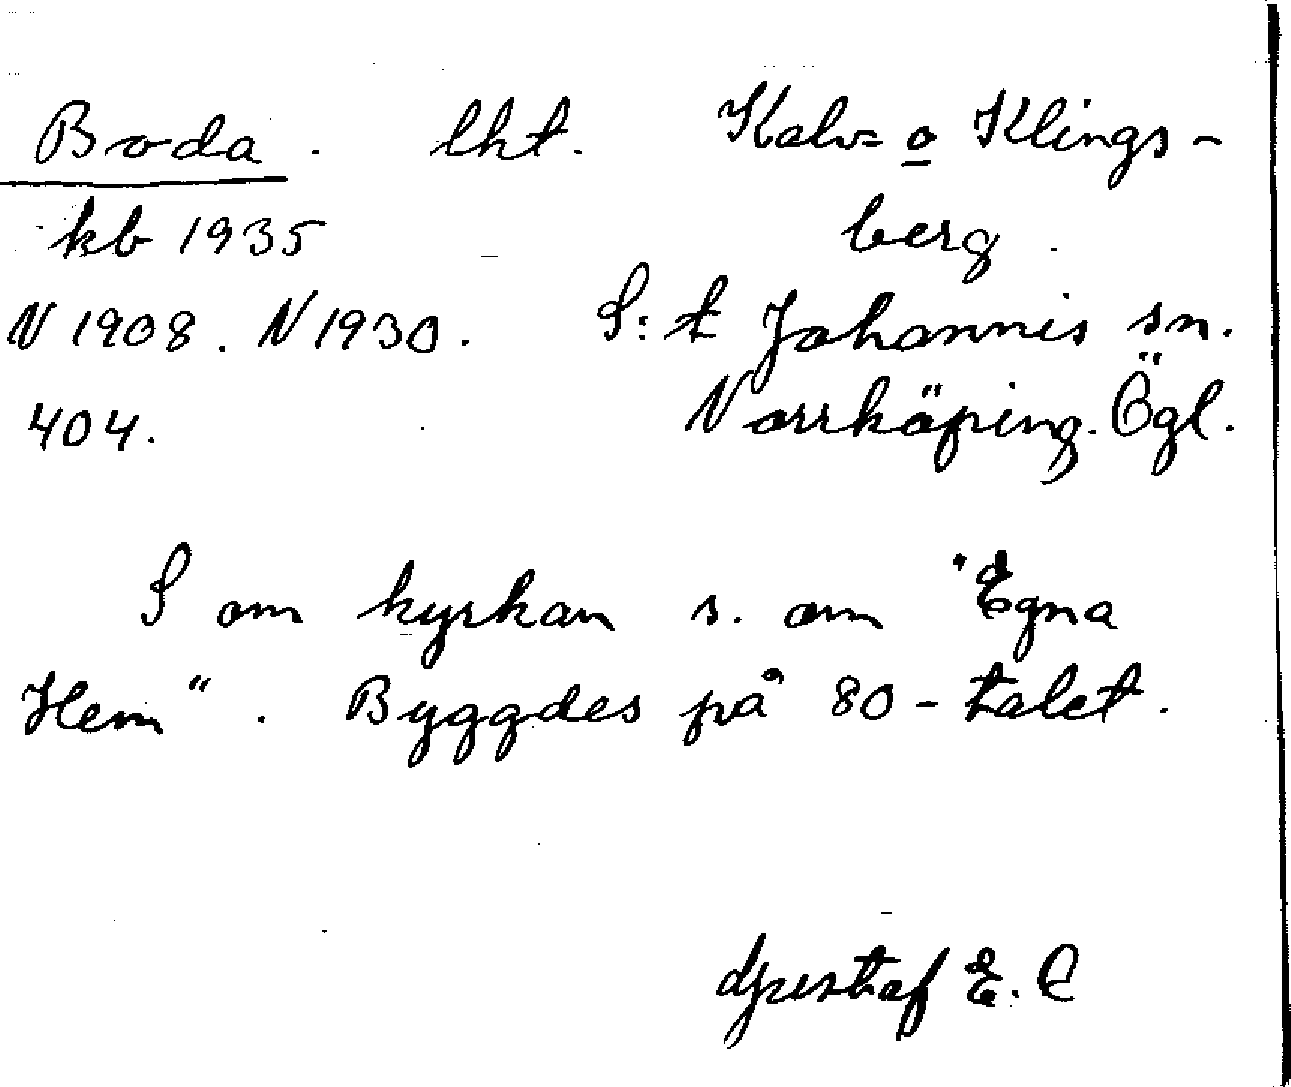 Boda. lht. Kalv= o Klings-
kb 1935 berg.
N 1908. N 1930. S:t Johannis sn.
404. Norrköping. Ögl.
S om kyrkan s. om "Egna
Hem". Byggdes på 80-talet.
Gustaf E. C